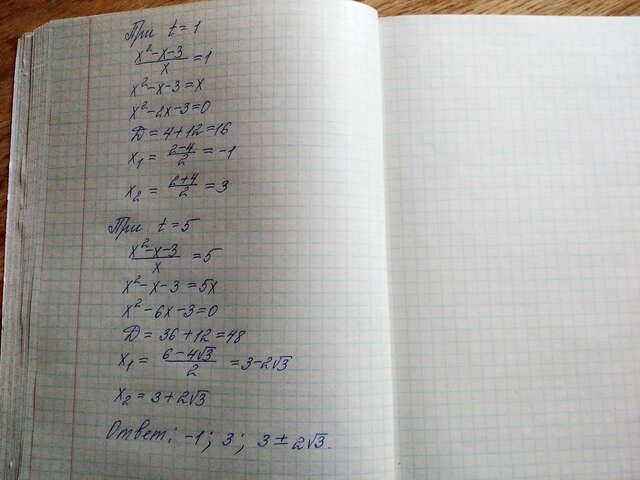 При t=1
x²-x-3/x =1
x²-x-3=x
x²-2x-3=0
D=4+12=16
x₁ = 2-4/2 = -1
x₂ = 2+4/2 = 3
При t=5
x²-x-3/x =5
x²-x-3=5x
x²-6x-3=0
D=36+12=48
x₁ = 6-4√3/2 =3-2√3
x₂ = 3+2√3
Ответ: -1; 3; 3±2√3.